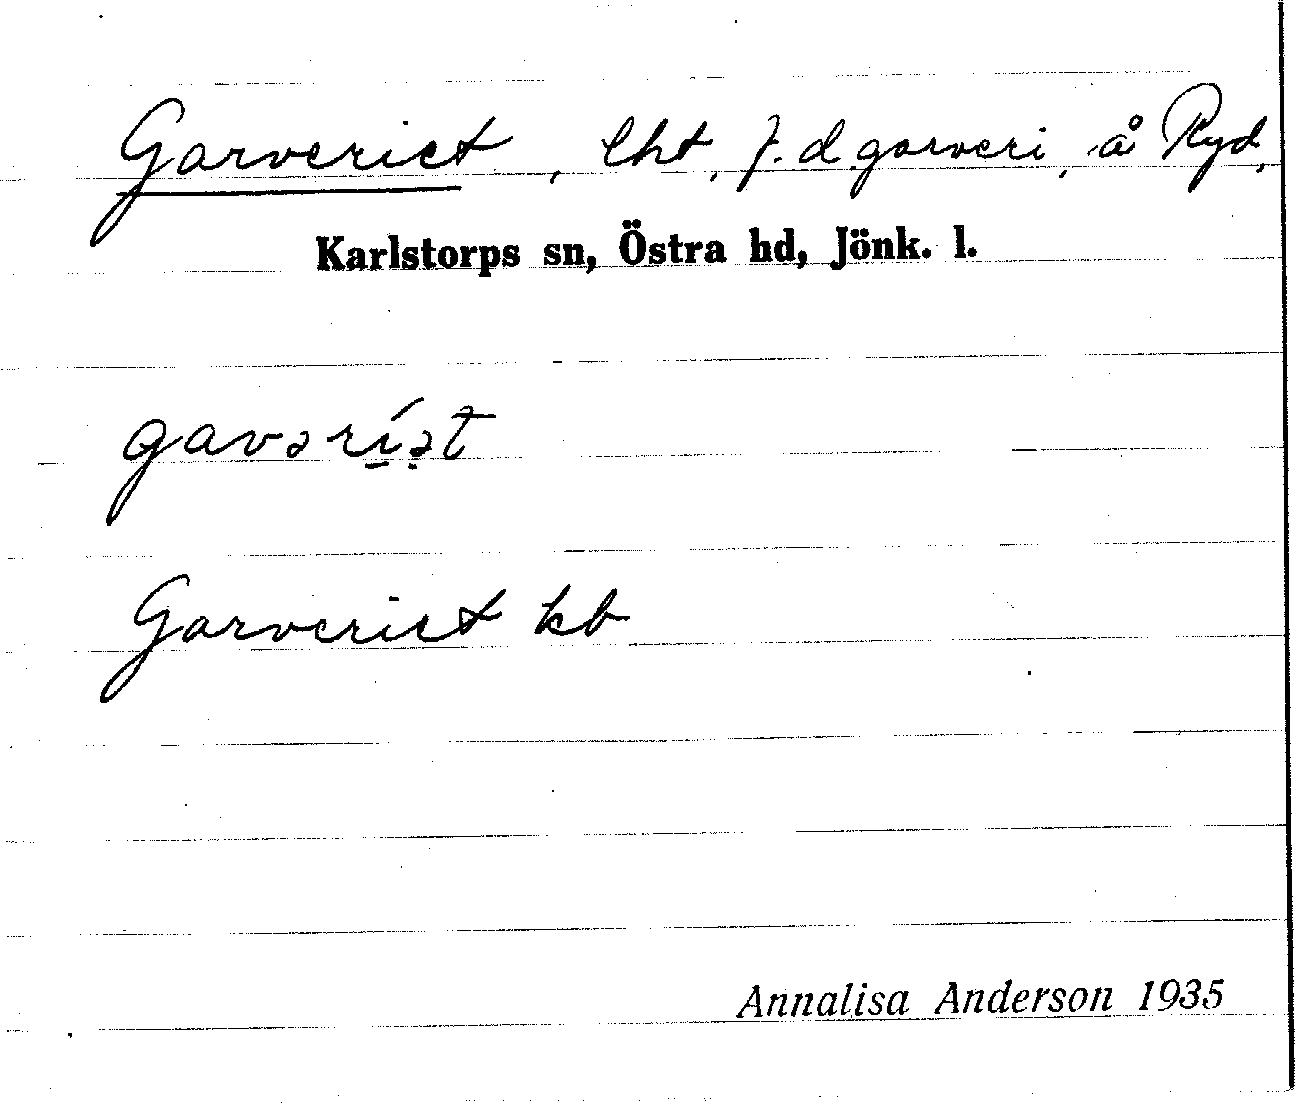 Garveriet, lht, f.d. garveri, å Ryd,
Karlstorps sn, Östra hd, Jönk. l.
gavərí̱ə̣t
Garveriet kb
Annalisa Anderson 1935